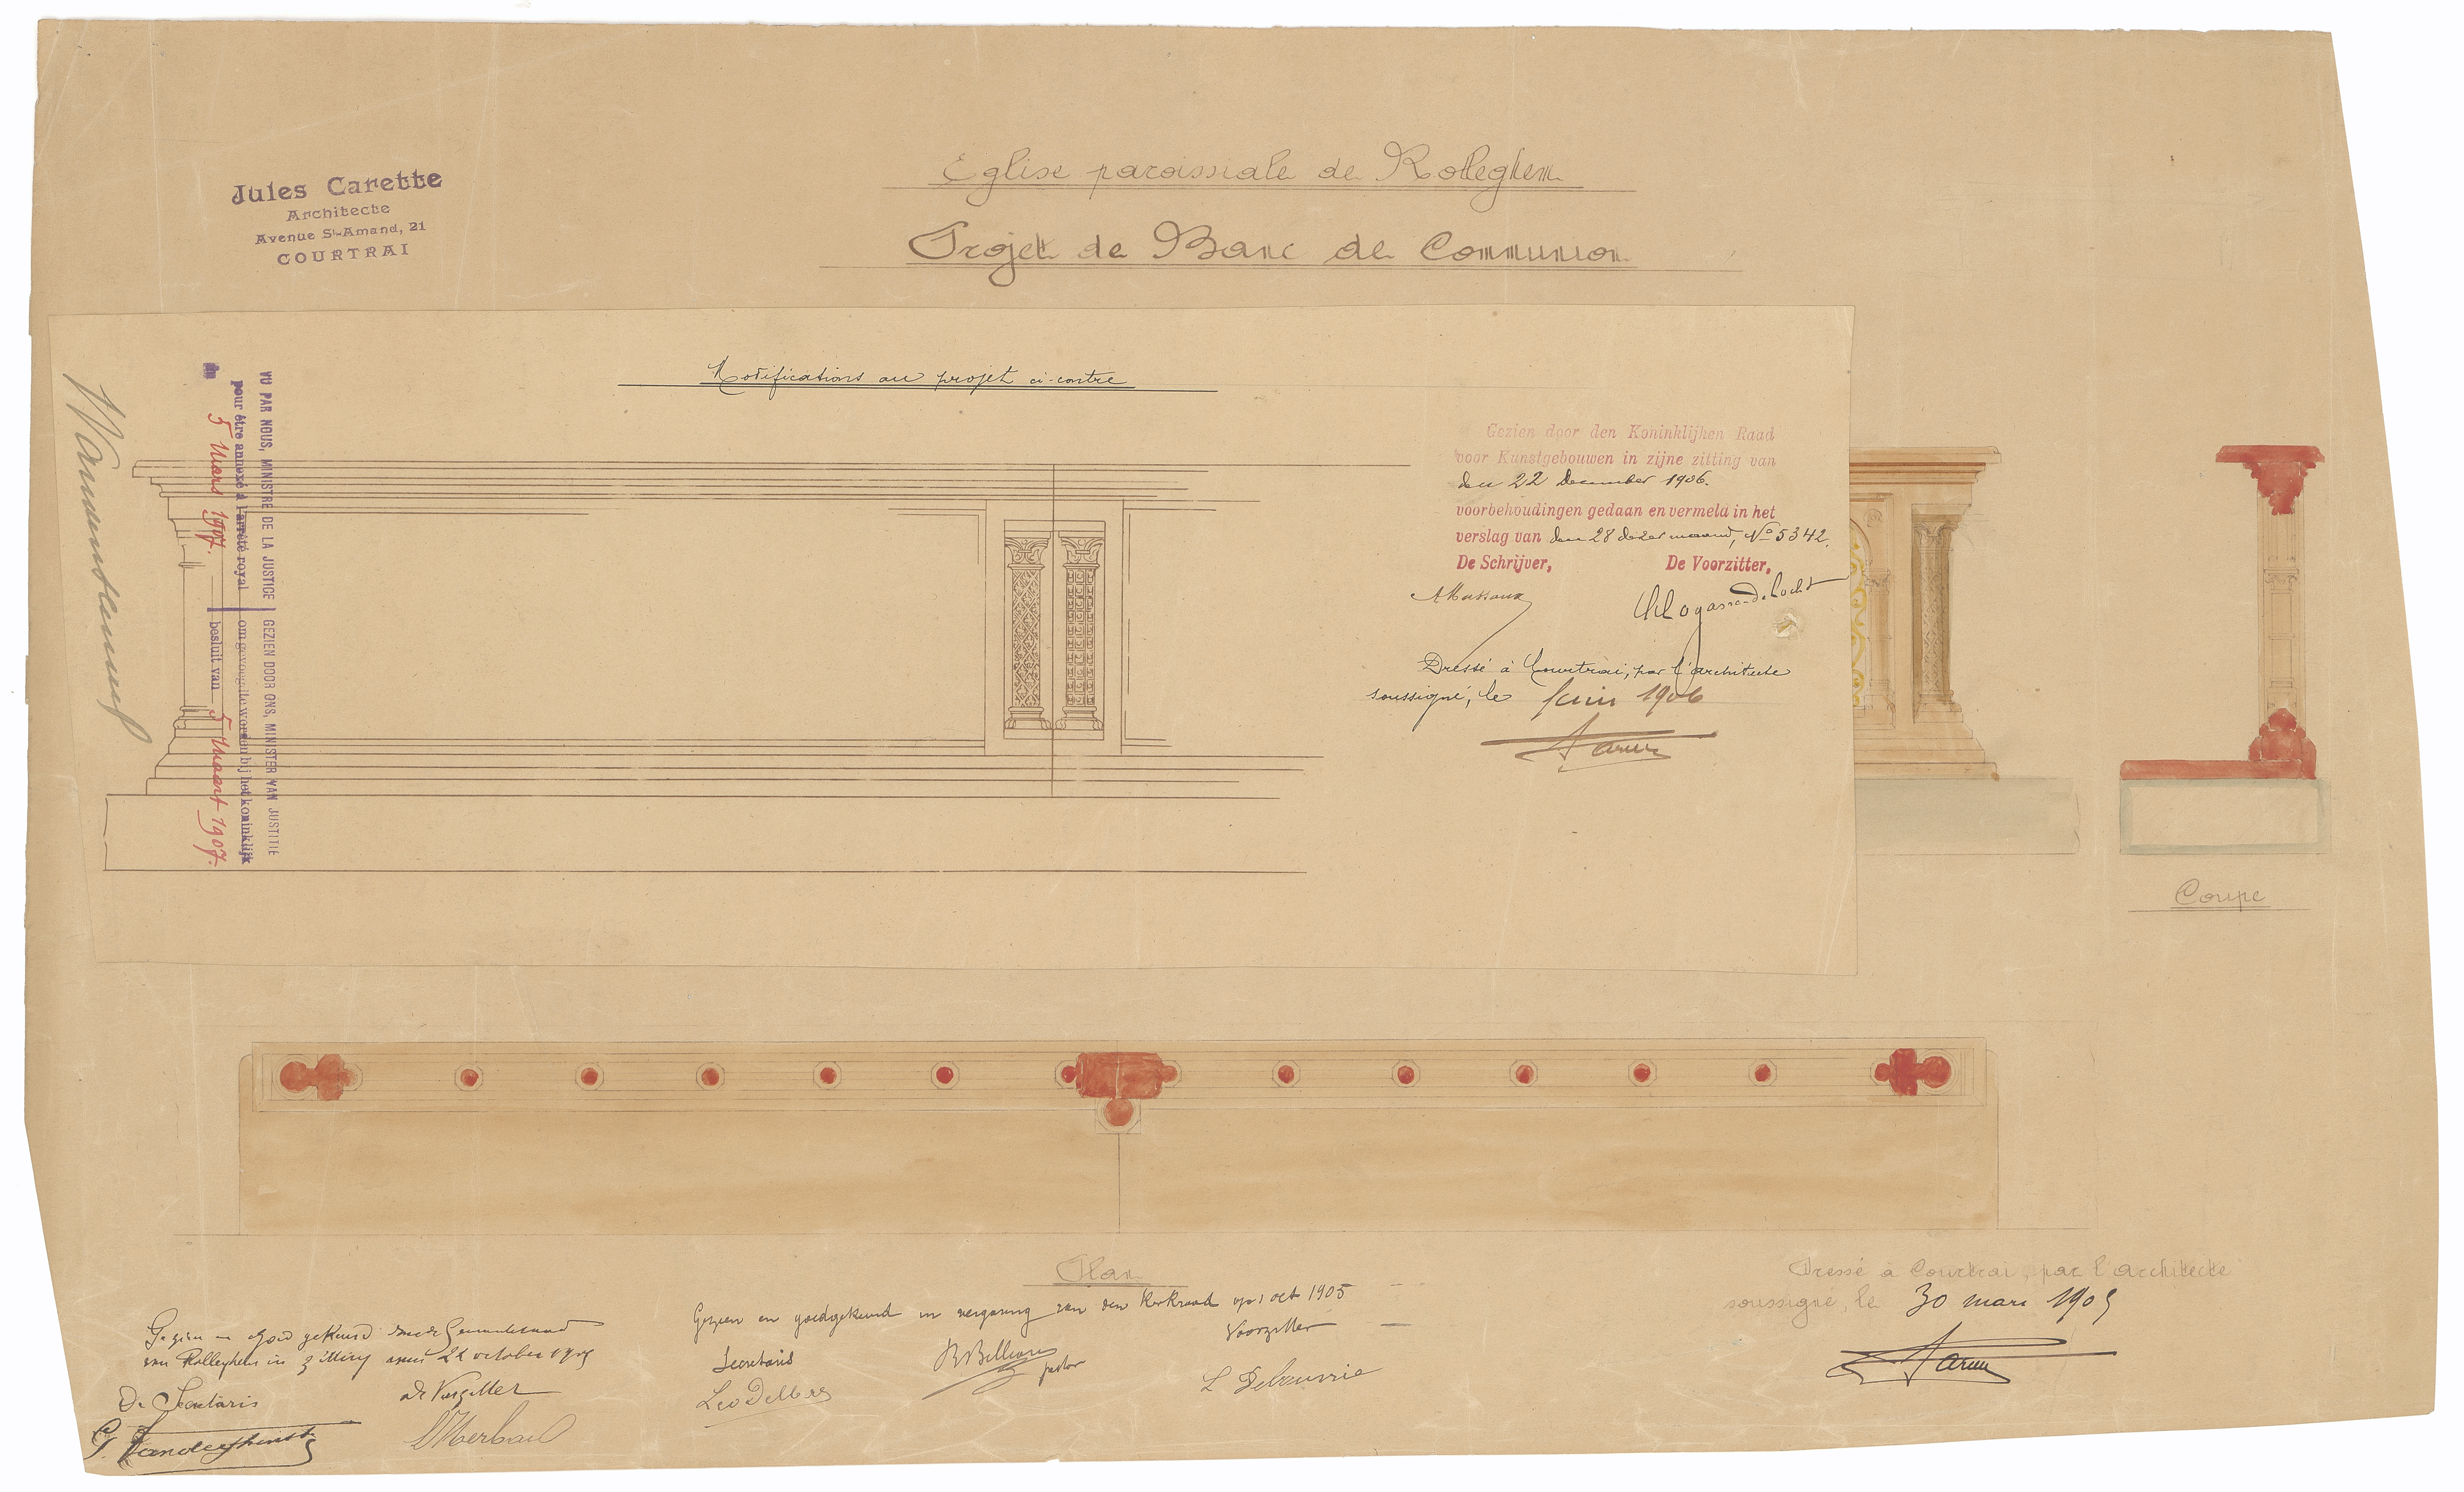 Jules Carette
Architecte
Avenue St-Amand, 21
COURTRAI
Eglise paroissiale de Rolleghem
Projet de Banc de Communion
Modifications au projet ci-contre
VU PAR NOUS, MINISTRE DE LA JUSTICE
pour être annexé à l'arrêté royal
du 5 Mars 1907.
GEZIEN DOOR ONS, MINISTER VAN JUSTITIE
om gevoegd te worden bij het koninklijk
besluit van 5 Maart 1907.
Gezien door den Koninklijken Raad
voor Kunstgebouwen in zijne zitting van
den 22 December 1906.
voorbehoudingen gedaan en vermeld in het
verslag van den 28 dezer maand, No 5342.
De Schrijver, De Voorzitter,
Dressé à Courtrai, par l'architecte
soussigné, le Juin 1906
Coupe
Plan
Dressé à Courtrai, par l'architecte
soussigné, le 30 mars 1905
Gezien en goedgekeurd in vergaring van den Kerkraad op 1 oct 1905
Secretaris pastor Voorzitter
Gezien en goed gekeurd door de Gemeenteraad
van Rolleghem in zitting van 22 october 1905
De Secretaris de Voorzitter